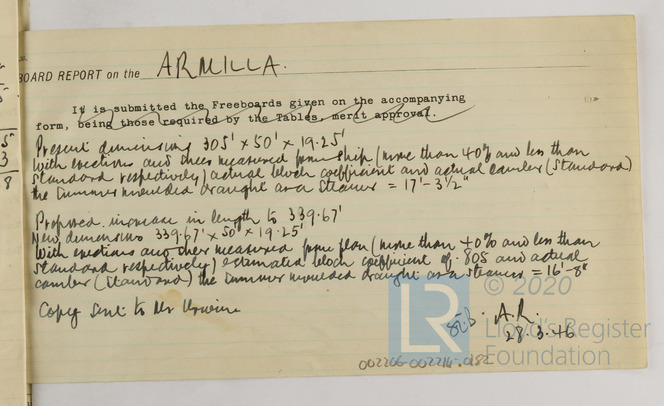 BOARD REPORT on the ARMILLA.
It is submitted the Freeboards given on the accompanying
form, being those required by the Tables, merit approval.
Present dimensions 305' x 50' x 19.25'
With erections and sheer measured from ship (more than 40% and less than
standard respectively) actual block coefficient and actual camber (standard)
the summer moulded draught as a steamer = 17'-3½"
Proposed increase in length to 339.67'
New dimensions 339.67' x 50' x 19.25'
With erections and sheer measured from plan (more than 40% and less than
standard respectively) estimated block coefficient of .805 and actual
camber (standard) the summer moulded draught as a steamer = 16'-8"
Copy sent to Mr
A.R.
28.3.46
© 2020
LR
Lloyd's Register
Foundation
002206-002214-0182
5
3
8